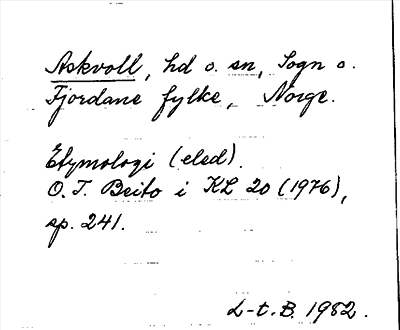 Askvoll, hd o. sn, Sogn o.
Fjordane fylke, Norge.
Etymologi (eled).
O. T. Beito i KL 20 (1976),
sp. 241.
L-t. B. 1982.